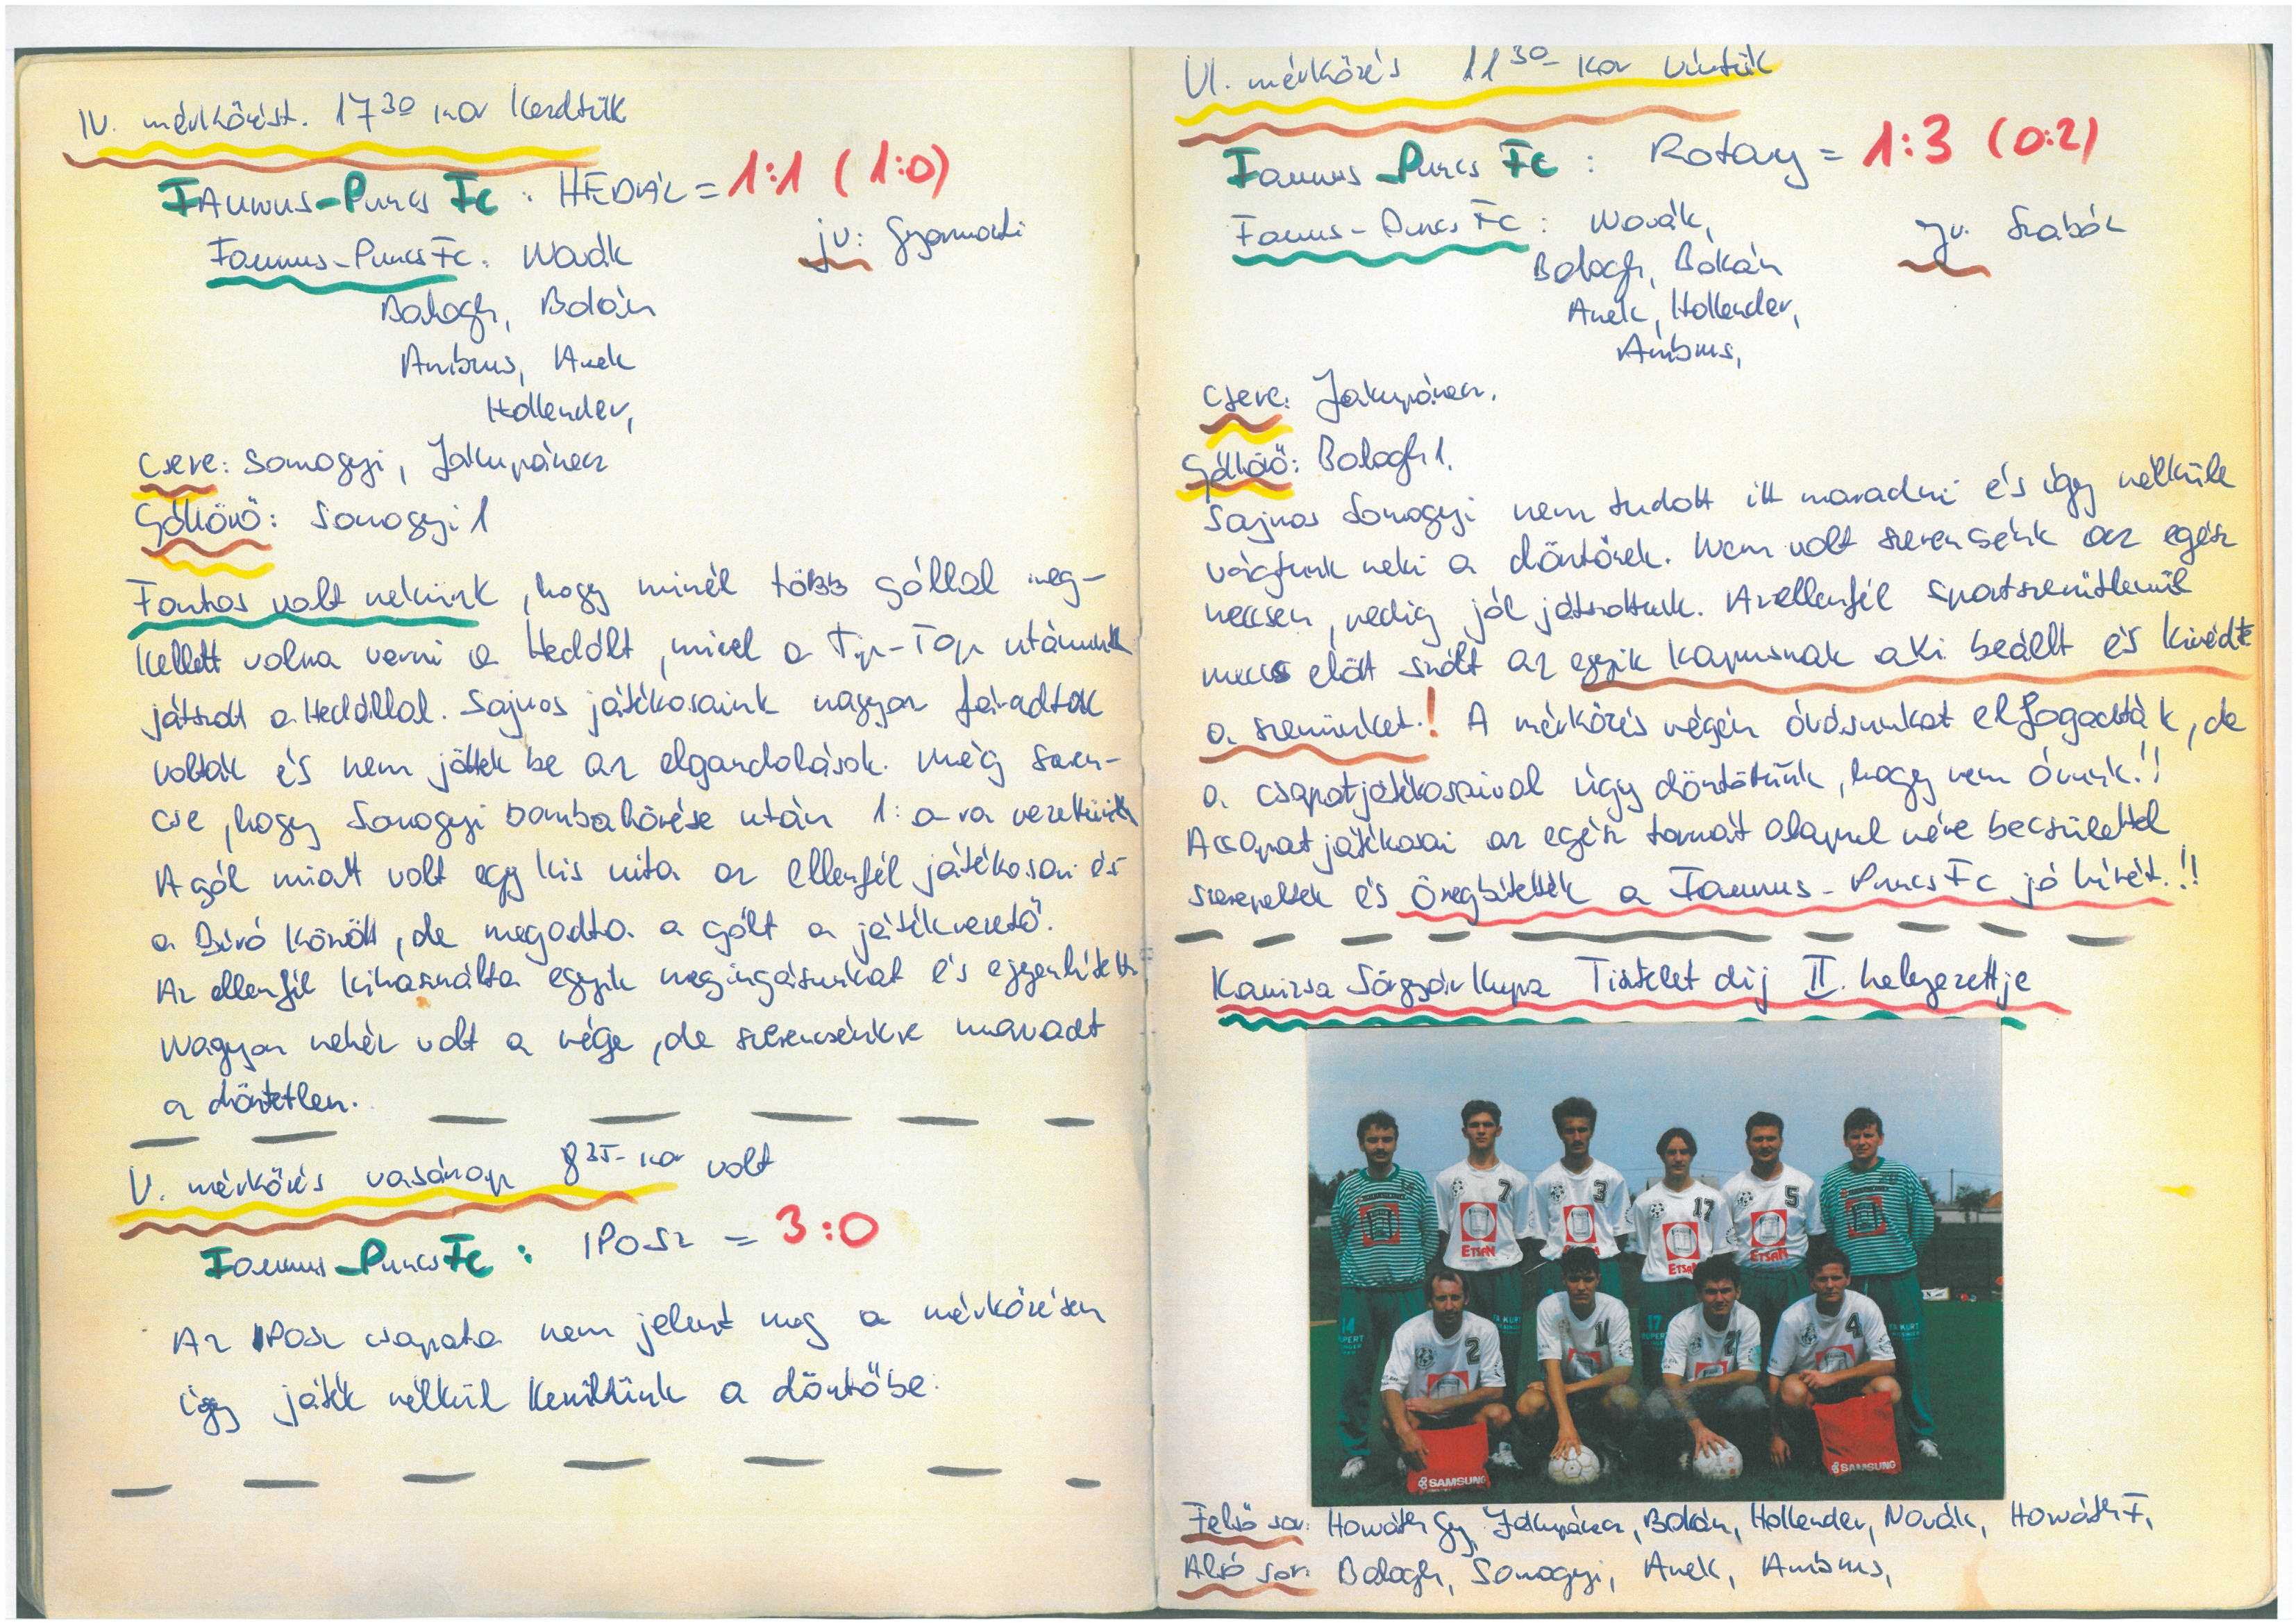 IV. mérkőzést. 17 30 kor kezdtük
FAunus-Purcs Fc : HEDÁL = 1:1 (1:0)
Faunus-Purcs Fc: Novák
jv: Gyarmati
Balogh, Bokán
Ambrus, Anek
Hollender,
Csere: Somogyi, Jakupánecz
Góllövő: Somogyi 1
Fontos volt nékünk, hogy minél több góllal meg-
kellett volna verni a Hedált, mivel a Tip-Top utánunk
játszott a Hedállal. Sajnos játékosaink nagyon fáradtak
voltak és nem jöttek be az elgondolások. Még szeren-
cse, hogy Somogyi bombalövése után 1:0-ra vezettünk
A gól miatt volt egy kis vita az ellenfél játékosai és
a Bíró között, de megadta a gólt a játékvezető.
Az ellenfél kihasználta egyik megingásunkat és egyenlített
Nagyon nehéz volt a vége, de szerencsénkre maradt
a döntetlen.
V. mérkőzés vasárnap 8 35-kor volt
Faunus-Purcs Fc : IPOSZ = 3:0
Az IPOSZ csapata nem jelent meg a mérkőzésen
így játék nélkül kerültünk a döntőbe.
VI. mérkőzés 11 30- kor vívtuk
Faunus-Purcs Fc : Rotary = 1:3 (0:2)
Faunus-Purcs Fc : Novák,
Jv. Szabók
Balogh, Bokán
Anek, Hollender,
Ambrus,
Csere: Jakupánecz.
Góllövő: Balogh 1.
Sajnos Somogyi nem tudott itt maradni és így nélküle
vágtunk neki a döntőnek. Nem volt szerencsénk az egész
meccsen, pedig jól játszottunk. Az ellenfél sportszerűtlenül
meccs előtt szólt az egyik kapusnak aki beállt és kivédte
a szemünket.! A mérkőzés végén óvásunkat elfogadták, de
a csapatjátékosaival úgy döntöttünk, hogy nem óvunk.!!
A csapat játékosai az egész tornát alapul véve becsülettel
szerepeltek és öregbítették a Faunus-Purcs Fc jó hírét.!!
Kanizsa Sörgyár Kupa Tisztelet díj II. helyezettje
7
3
17
5
ETSAN
ETSAN
ETSAN
2
11
21
4
14
17
SAMSUNG
SAMSUNG
Felső sor: Horváth Gy, Jakupánecz, Bokán, Hollender, Novák, Horváth F,
Alsó sor: Balogh, Somogyi, Anek, Ambrus,